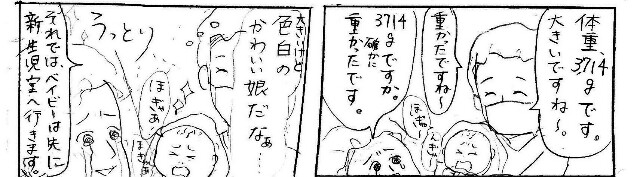 体重、3714
gです。
大きいですね〜。
重かったですね〜
3714
gですか。
確かに
重かったです。
ほぎゃ
ほぎゃー
大きいけど
色白の
かわいい娘だなぁ…
うっとり
ほぎゃあ
ほぎゃあ
それでは、ベイビーは先に
新生児室へ行きます。